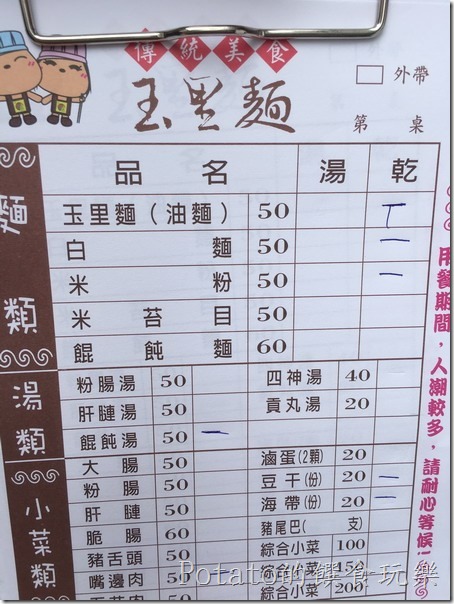 傳統美食
玉里麵
外帶
第 桌
品 名 湯 乾
麵類
玉里麵（油麵） 50 丅
白麵 50 一
米粉 50 一
米苔目 50
餛飩麵 60
湯類
粉腸湯 50 四神湯 40
肝腱湯 50 貢丸湯 20
餛飩湯 50 一
小菜類
大腸 50 滷蛋(2顆) 20
粉腸 50 豆干(份) 20 一
肝腱 50 海帶(份) 20 一
脆腸 60 豬尾巴( 支)
豬舌頭 50 綜合小菜 100
嘴邊肉 50 綜合小菜 150
綜合小菜 200
用餐期間，人潮較多，請耐心等候!
Potato的饌食玩樂